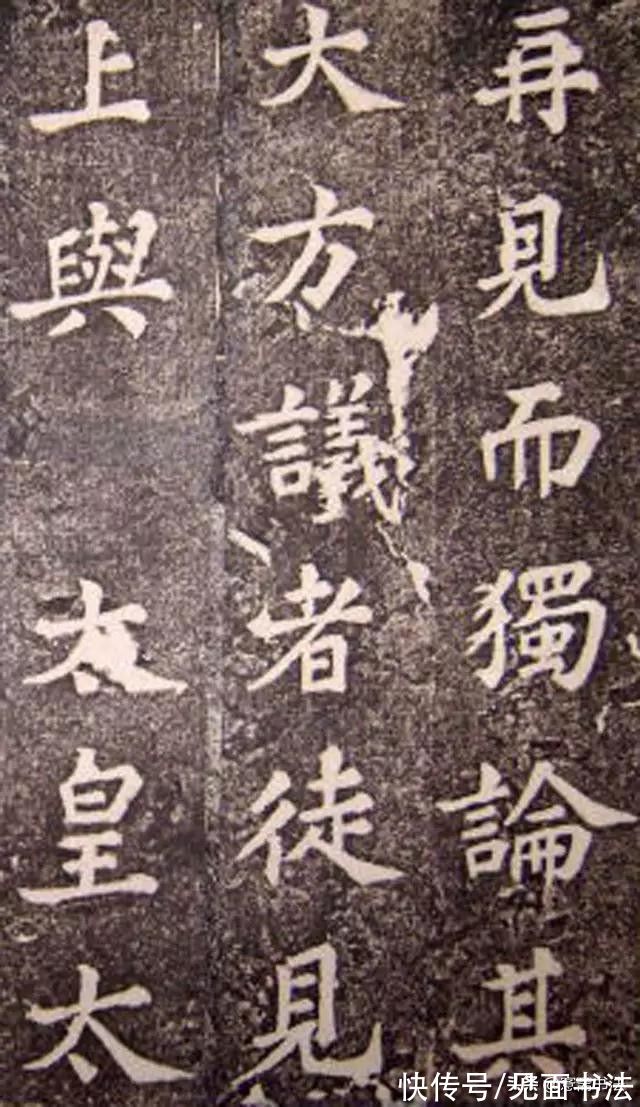 再見而獨論其
大方議者徒見
上與太皇太
快传号/见面书法